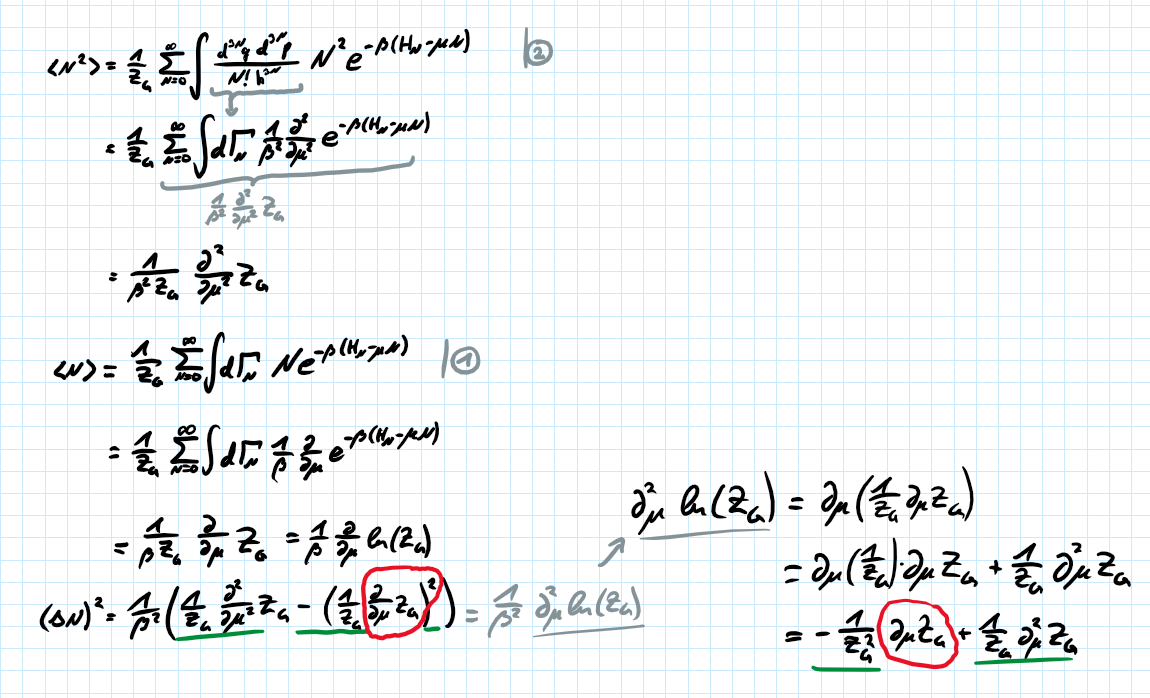 <N²> = 1/Z_G ∑_{N=0}^{∞} ∫ d^{3N}q d^{3N}p / (N! h^{3N}) N² e^{-β(H_N-μN)} |②
= 1/Z_G ∑_{N=0}^{∞} ∫ dΓ_N 1/β² ∂²/∂μ² e^{-β(H_N-μN)}
1/β² ∂²/∂μ² Z_G
= 1/(β² Z_G) ∂²/∂μ² Z_G
<N> = 1/Z_G ∑_{N=0}^{∞} ∫ dΓ_N N e^{-β(H_N-μN)} |①
= 1/Z_G ∑_{N=0}^{∞} ∫ dΓ_N 1/β ∂/∂μ e^{-β(H_N-μN)}
= 1/(β Z_G) ∂/∂μ Z_G = 1/β ∂/∂μ ln(Z_G)
(ΔN)² = 1/β² (1/Z_G ∂²/∂μ² Z_G - (1/Z_G ∂/∂μ Z_G)²) = 1/β² ∂²_μ ln(Z_G)
∂²_μ ln(Z_G) = ∂_μ (1/Z_G ∂_μ Z_G)
= ∂_μ (1/Z_G) · ∂_μ Z_G + 1/Z_G ∂²_μ Z_G
= - 1/Z_G² ∂_μ Z_G + 1/Z_G ∂²_μ Z_G